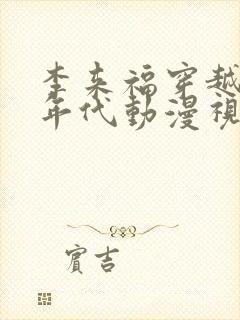 李来福穿越
年代動漫視
賓吉